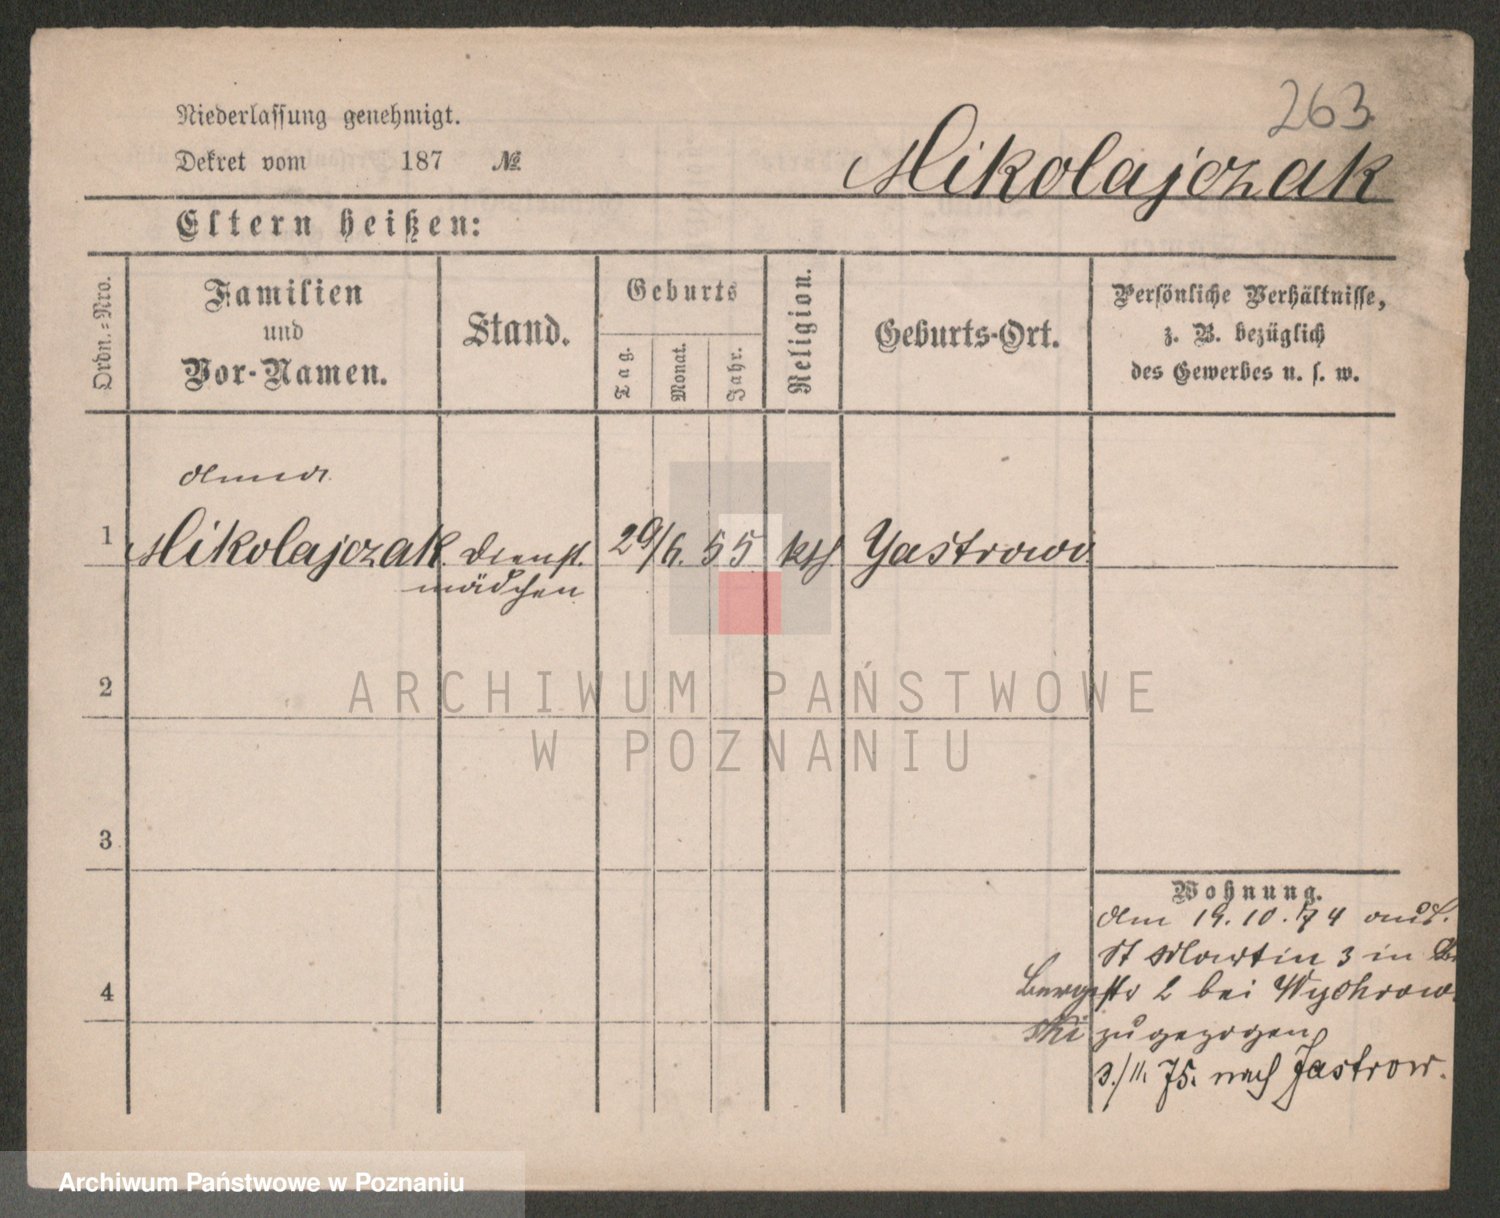 263.
Niederlassung genehmigt.
Dekret vom 187 №
Mikolajczak
Eltern heißen:
Ordn.-Nro.
Familien
und
Vor-Namen.
Stand.
Geburts
Tag.
Monat.
Jahr.
Religion.
Geburts-Ort.
Persönliche Verhältnisse,
z. B. bezüglich
des Gewerbes u. s. w.
1 Mikolajczak. Dienst- 29/6. 55 kth Yastrowo
mädchen
2
3
4
Wohnung.
Am 19.10.74 aus
St Martin 3 in
Bergstr 2 bei Wychrow
ski zugezogen
3./11. 75. nach Jastrow.
ARCHIWUM PAŃSTWOWE
W POZNANIU
Archiwum Państwowe w Poznaniu